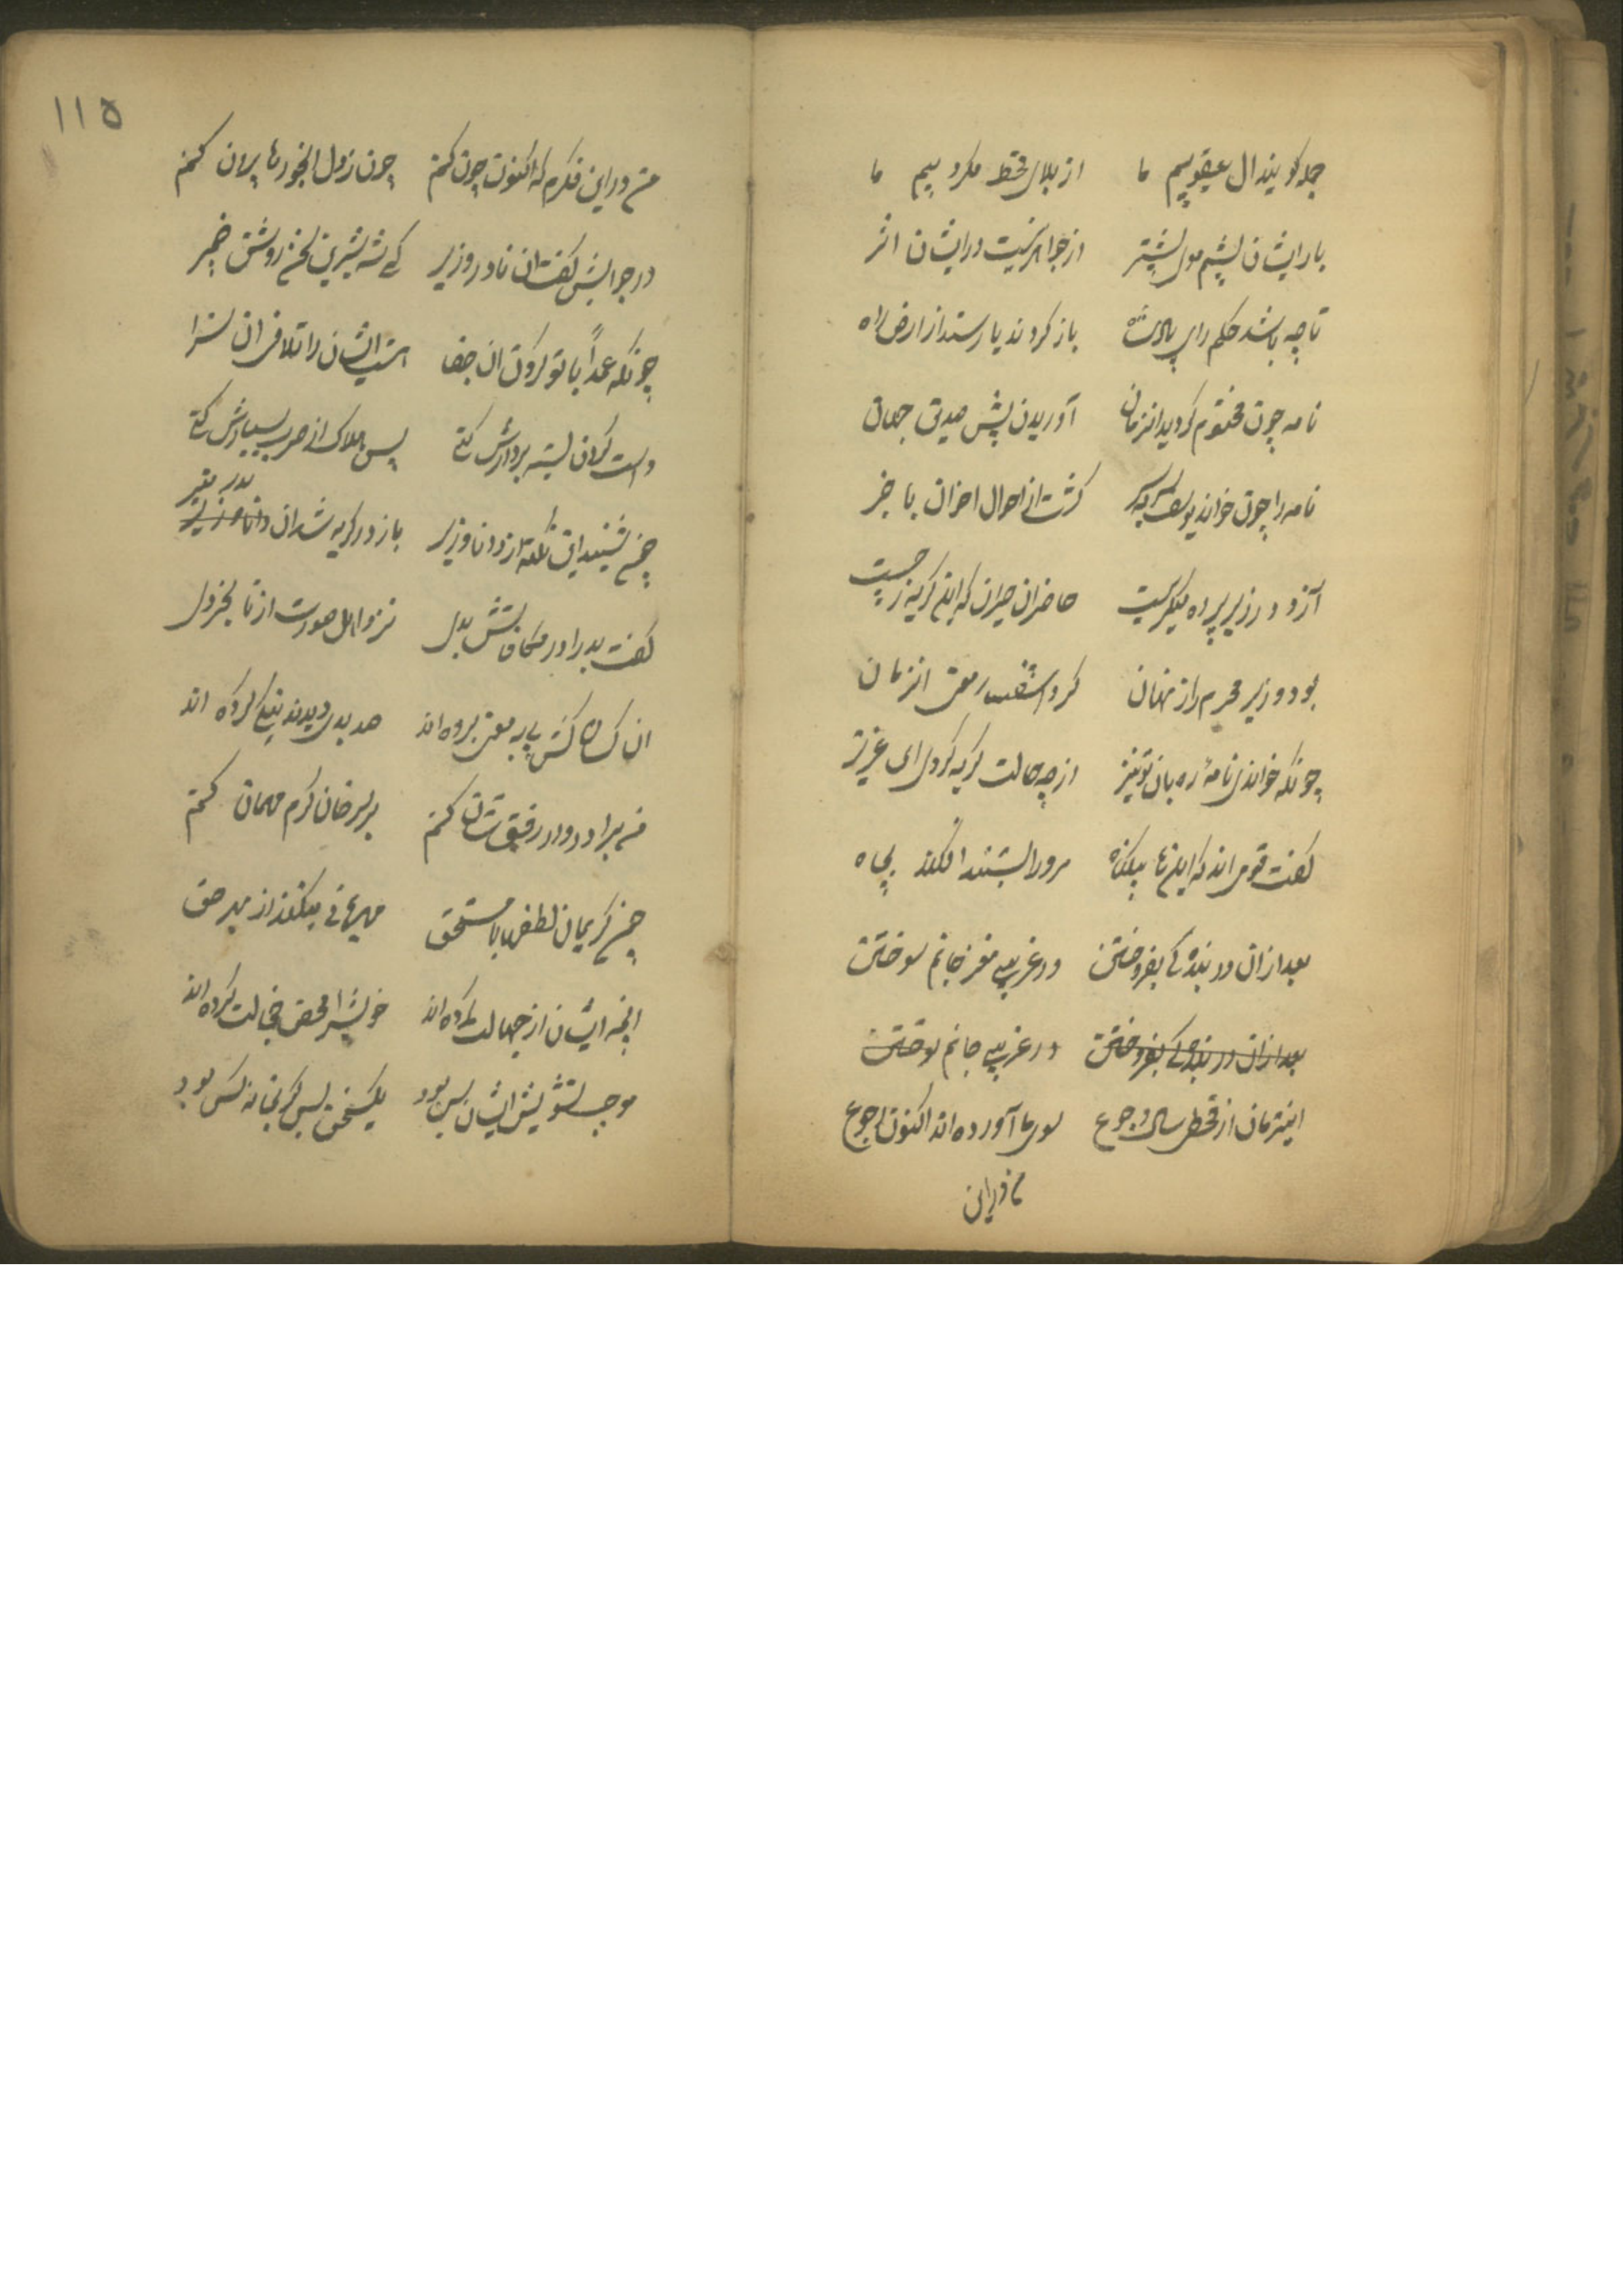 جمله گویند آل یعقوبیم ما از بلای قحط مکروبیم ما
بار ایشان پشم موی بیشتر از جواهر نیست در ایشان اثر
تا چه باشد حکم رای پادشاه باز گردند یا رسند از ارض راه
نامه چون مختوم گردید انزمان آوریدن پیش صدیق جهان
نامه را چون خواند یوسف گشت از احوال اخوان با خبر
آنزد در زیر پرده میگریست حاضران حیران که این گریه ز چیست
بود وزیر محرم راز نهان کرد استفسار معنی انزمان
چونکه خواندی نامه ره بان تو نیز از چه حالت گریه کردی ای عزیز
گفت قومی اند که اینها بیگناه مر ورا بستند افکند بچاه
بعد ازان در بنده گی بفروختن در غریبی مغز جانم سوختن
بعد ازان در بنده گی بفروختن در غریبی جانم سوختن
اینزمان از قحط سالی و جوع سوی ما آورده اند اکنون رجوع
من در این
۱۱۵
من در این فکرم که اکنون چون کنم چون ز دل این خورها بیرون کنم
در جوابش گفت ان نادر وزیر کی شه شیرین سخن روشن ضمیر
چونکه عمداً با تو کردن ان جفا هست ایشان را تلافی ان سزا
دست گردن بسته بر دارش کنی پس هلاک از ضرب بسیارش کنی
چون شنید این نکته از دانا وزیر باز در گریه شد ان بدر منیر
گفت بد را در مکافاتش بدل نزد اهل صورت از نا بخردل
ان کسان کش پی به معنی برده اند صد بدی دیدند نیکی کرده اند
من برادر در رفیق شان کنم بر سر خان کرم مهمان کنم
چون کریمان لطفها با مستحق مهربانی میکنند از بهر حق
انچه ایشان از جهالت کرده اند خویش را محض خجالت کرده اند
موجب تشویش ایشان بس بود یکسخن بس گر بخانه کس بود